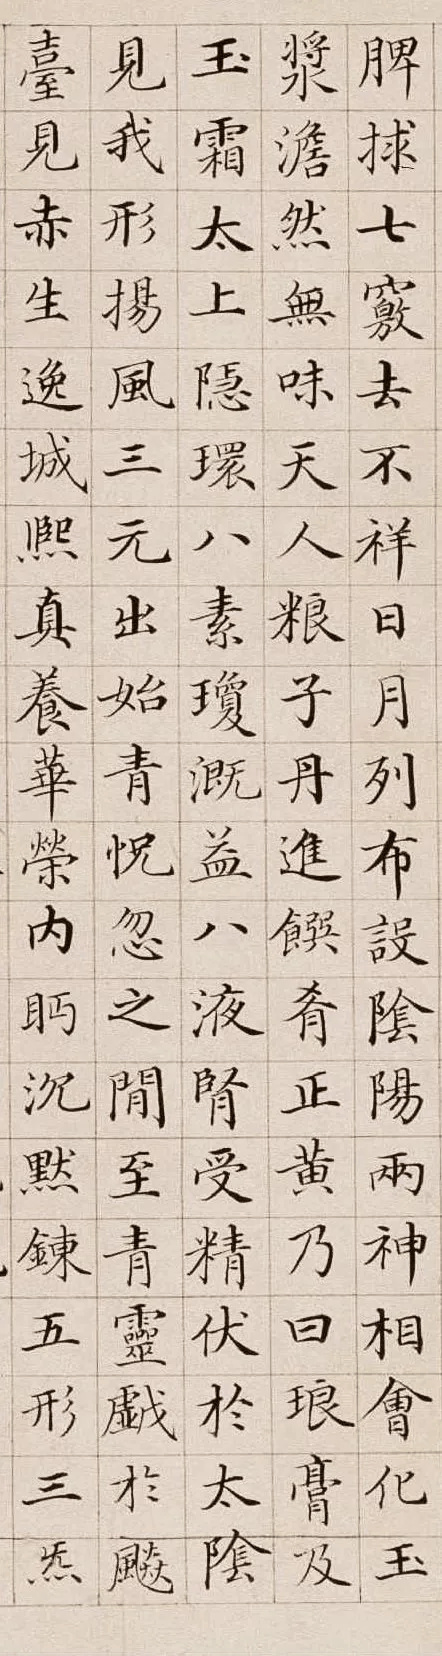 脾捄七竅去不祥日月列布設陰陽兩神相會化玉
漿澹然無味天人粮子丹進饌肴正黃乃曰琅膏及
玉霜太上隱環八素瓊溉益八液腎受精伏於太陰
見我形揚風三元出始青怳忽之閒至青靈戲於颷
臺見赤生逸城熙真養華榮內眄沉默鍊五形三炁